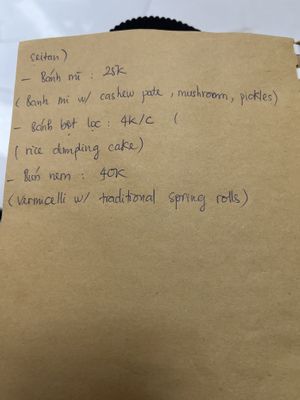 seitan)
- Bánh mì : 25K
(Banh mi w/ cashew pate, mushroom, pickles)
- Bánh bột lọc : 4K/c (
( rice dumpling cake)
- Bún nem : 40K
(Vermicelli w/ traditional spring rolls)